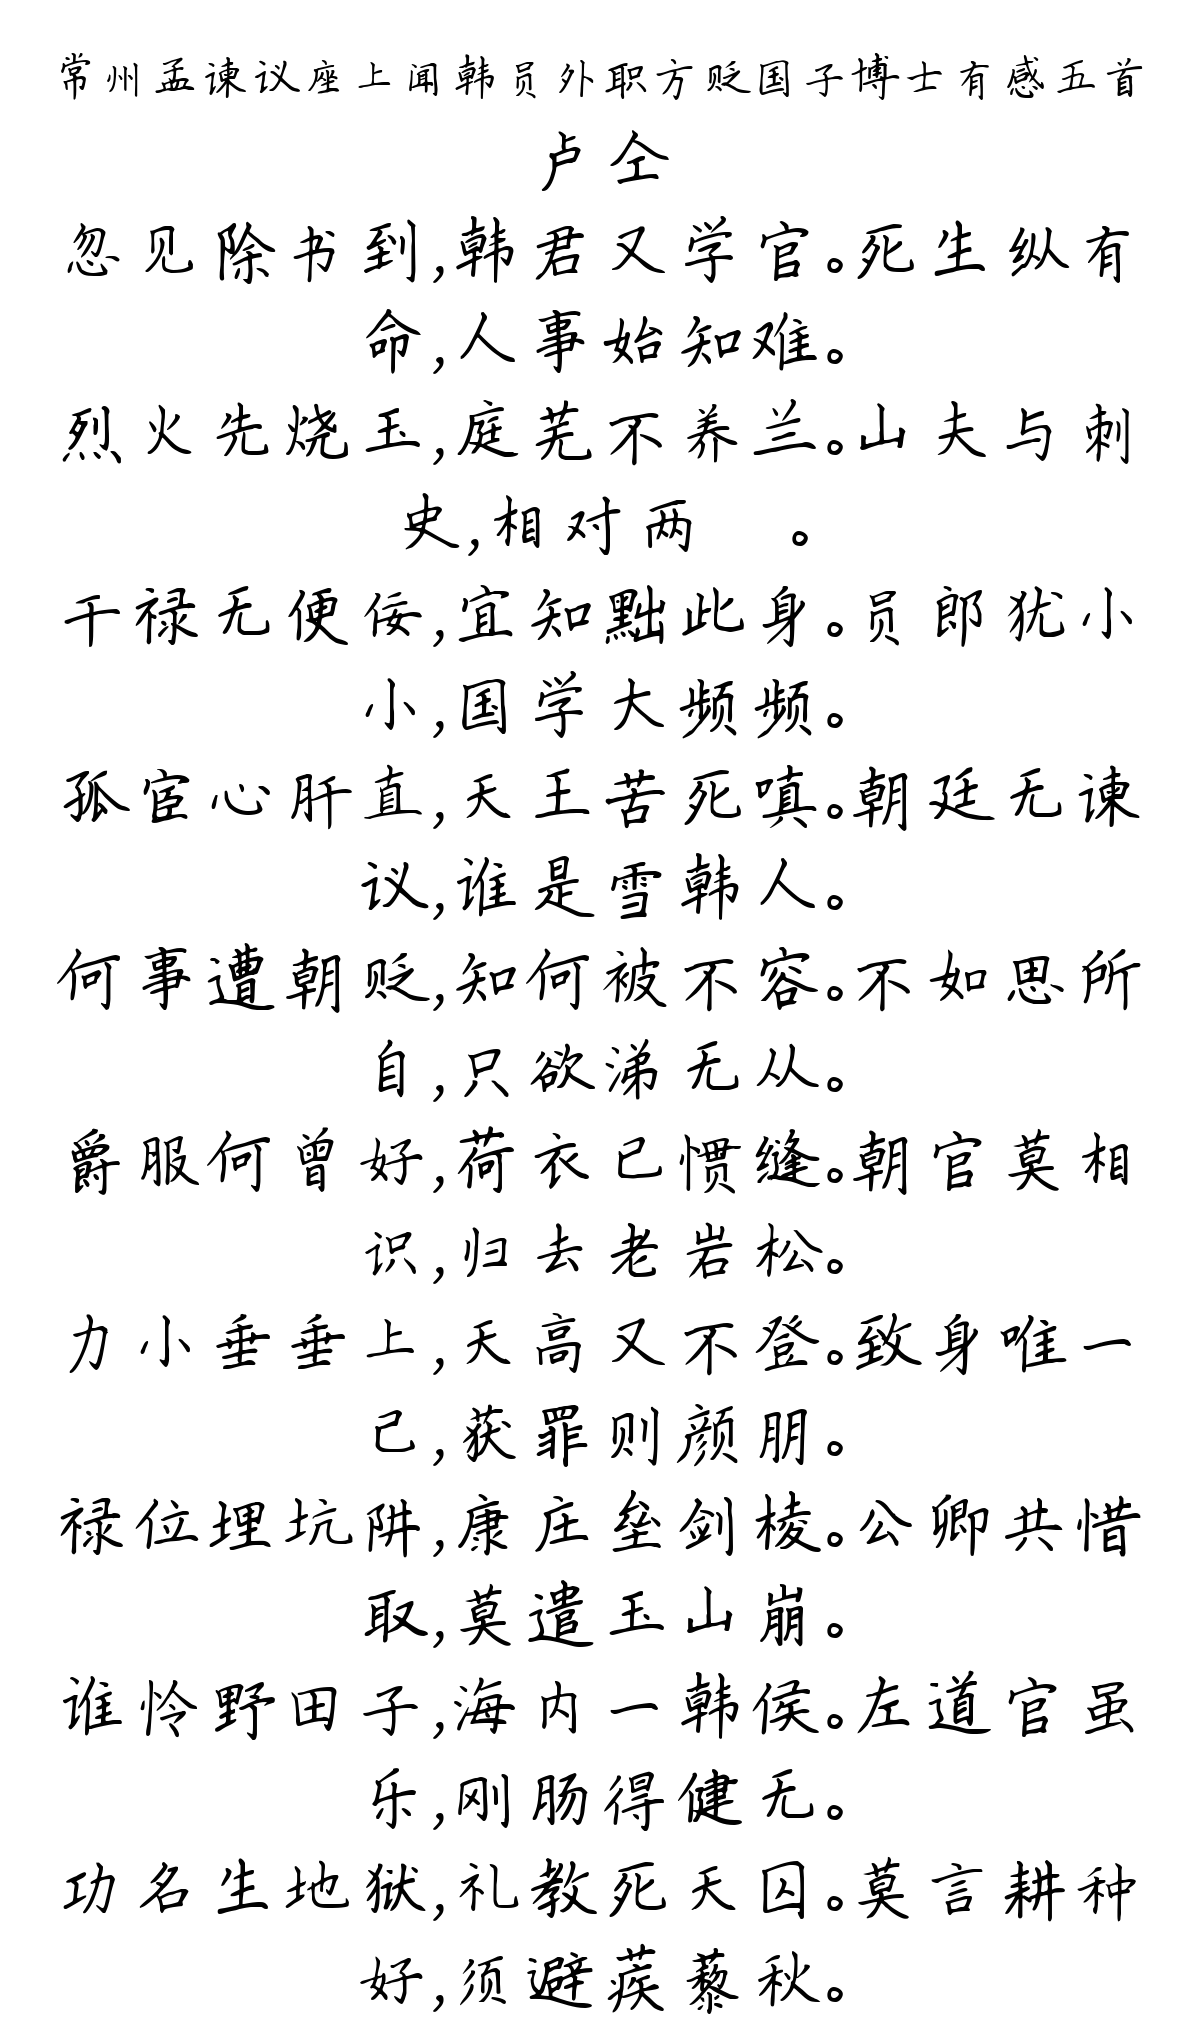 常州孟谏议座上闻韩员外职方贬国子博士有感五首
卢仝
忽见除书到,韩君又学官。死生纵有
命,人事始知难。
烈火先烧玉,庭芜不养兰。山夫与刺
史,相对两 。
干禄无便佞,宜知黜此身。员郎犹小
小,国学大频频。
孤宦心肝直,天王苦死嗔。朝廷无谏
议,谁是雪韩人。
何事遭朝贬,知何被不容。不如思所
自,只欲涕无从。
爵服何曾好,荷衣已惯缝。朝官莫相
识,归去老岩松。
力小垂垂上,天高又不登。致身唯一
己,获罪则颜朋。
禄位埋坑阱,康庄垒剑棱。公卿共惜
取,莫遣玉山崩。
谁怜野田子,海内一韩侯。左道官虽
乐,刚肠得健无。
功名生地狱,礼教死天囚。莫言耕种
好,须避蒺藜秋。